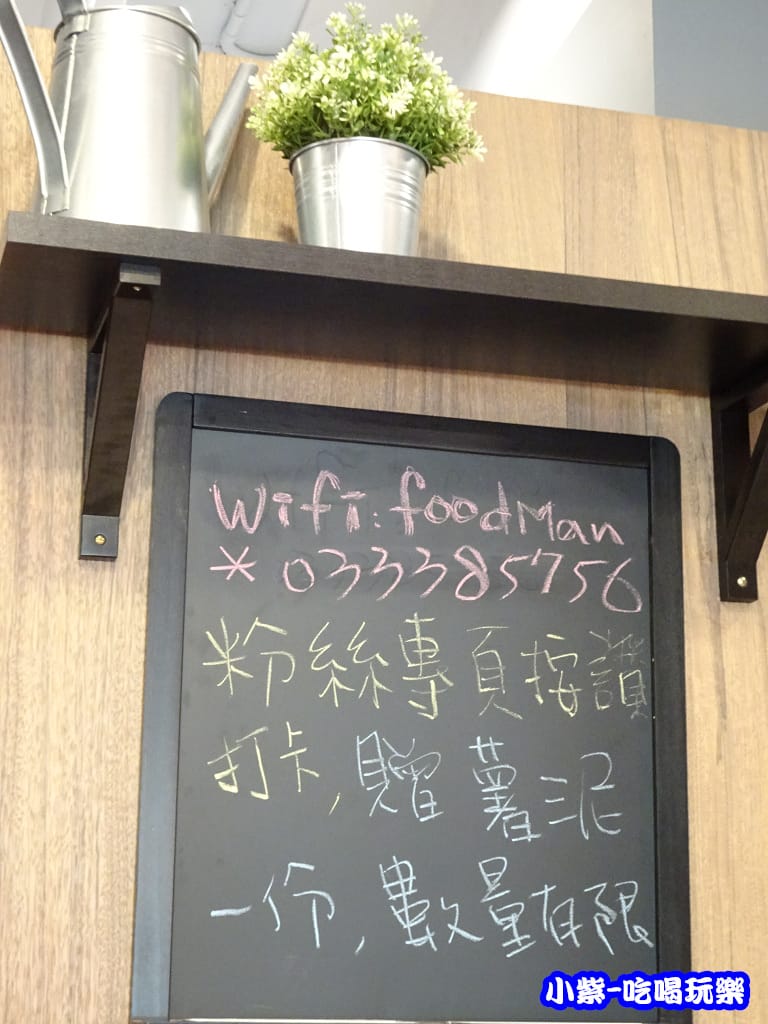 Wifi:foodMan
*033385756
粉絲專頁按讚
打卡,贈薯泥
一份,數量有限
小紫-吃喝玩樂